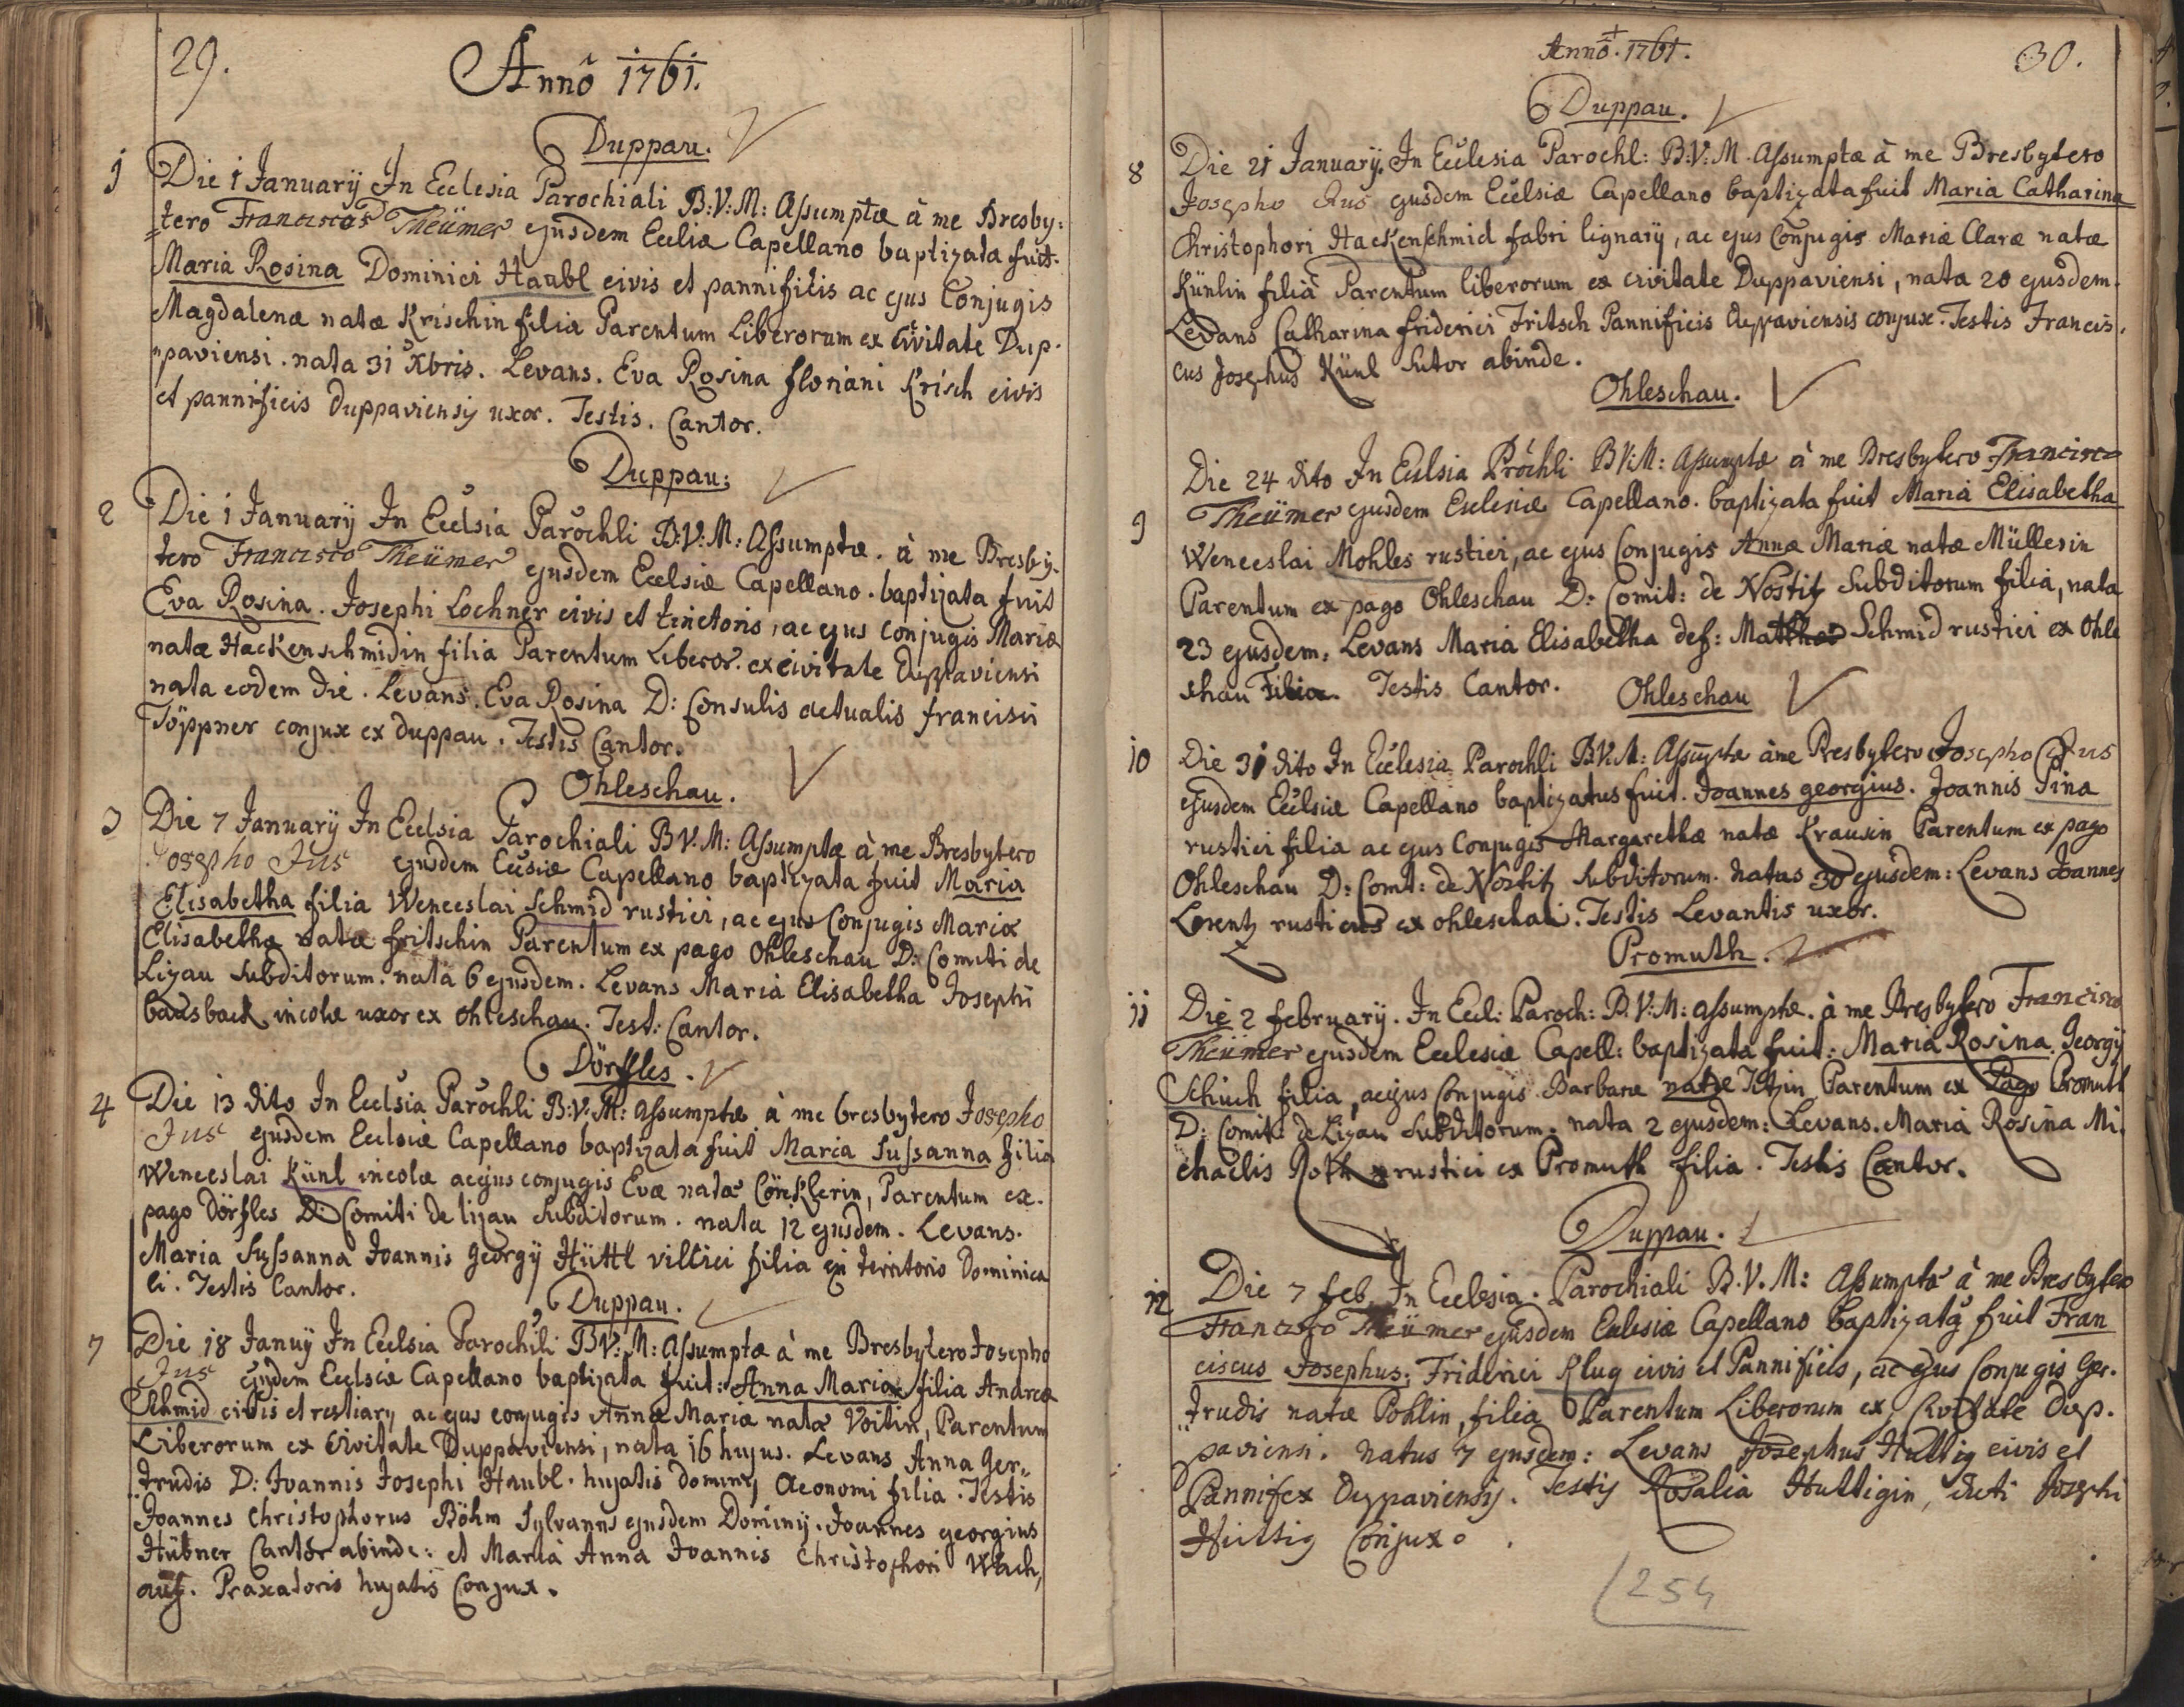 29.
Annô 1761.
Duppau.
1 Die 1 Januarÿ In Ecclesia Parochiali B:V:M: Assumptæ à me Presby:
tero Franciscos Theümer ejusdem Eccliæ Capellano baptizata fuit
Maria Rosina Dominici Haubl civis et pannificis ac ejus Conjugis
Magdalenæ natæ Krischin filia Parentum Liberorum ex Civitate Dup-
paviensi. nata 31 Xbris. Levans. Eva Rosina floriani Krisch civis
et pannificis duppaviensis uxor. Testis. Cantor.
Duppau:
2 Die 1 Januarÿ In Ecclsia Parochli B:V:M: Assumptæ. à me Presby-
tero Francisco Theümer ejusdem Ecclsiæ Capellano. baptizata fuit
Eva Rosina. Josephi Lochner civis et tinctoris, ac ejus conjugis Mariæ
natæ Hackenschmidin filia Parentum Liberor. ex civitate Duppaviensi
nata eodem die. Levans. Eva Rosina D: Consulis actualis francisci
Töppner conjux ex duppau. Testis Cantor.
Ohleschau.
3 Die 7 Januarÿ In Ecclsia Parochiali B.V.M: Assumptæ à me Presbytero
osepho Jus ejusdem Eccsiæ Capellano baptizata fuit Maria
Elisabetha filia Wenceslai Schmid rustici, ac ejus Conjugis Mariæ
Elisabethæ natæ fritschin Parentum ex pago Ohleschau D: Comiti de
Lizau subditorum. nata 6 ejusdem. Levans Maria Elisabetha Josephi
bausback incolæ uxor ex Ohleschau. Test: Cantor.
Dörfles.
4 Die 13 dito In Ecclsia Parochli B:V:M: assumptæ à me bresbytero Josepho
Jus ejusdem Ecclsiæ Capellano baptizata fuit Maria Sussanna filia
Wenceslai Künl incolæ acejus conjugis Evæ natæ Cörcklerin, Parentum ex.
pago Dörfles D: Comiti de lizau subditorum. nata 12 ejusdem. Levans.
Maria Sussanna Joannis Georgÿ Hüttl villici filia in territorio Dominica
li. Testis Cantor.
Duppau.
7 Die 18 Januÿ In Ecclsia Parochili B:V:M: assumptæ à me Bresbytero Josepho
Jus ejusdem Ecclsiæ Capellano baptizata fuit: Anna Maria filia Andreæ
Schmid civis et restiarÿ ac ejus conjugis Annæ Mariæ natæ Voitin, Parentum
Liberorum ex Civitate Duppaviensi, nata 16 hujus. Levans Anna Ger„
trudis D: Joannis Josephi Haubl. hujatis dominÿ Aeonomi filia. Testis
Joannes Christophorus Böhm Sylvanus ejusdem Dominÿ. Joannes georgius
Hübner Cantor abinde: et Maria Anna Joannis Christophori Wach,
auf. Praxatoris hujatis Conjux.
Annô. 1761.
30.
Duppau.
8 Die 21 Januarÿ. In Ecclesia Parochl: B:V:M. Assumptæ à me Bresbytero
Josepho Jus ejusdem Ecclsiæ Capellano baptizata fuit Maria Catharina
Christophori Hackenschmid fabri lignarÿ, ac ejus Conjugis Mariæ Claræ natæ
Künlin filia Parentum liberorum ex civitate Duppaviensi, nata 20 ejusdem.
Levans Catharina friderici Fritsch Pannificis duppaviensis conjux. Testis Francis.
cus Josephus Künl Sutor abinde.
Ohleschau.
Die 24 dito In Ecclsia Prochli B:V:M: assumptæ à me Bresbytero Francisco
9 Theümer ejusdem Ecclesiæ Capellano. baptizata fuit Maria Elisabetha
Wenceslai Mohles rustici, ac ejus Conjugis Annæ Mariæ natæ Müllerin
Parentum ex pago Ohleschau D: Comit: de Nostitz subditorum filia, nata
23 ejusdem. Levans Maria Elisabetha def: Matthæi Schmid rustici ex Ohle
schau Filia. Testis Cantor.
Ohleschau
10 Die 31 dito In Ecclesia Parochli B.V.M: Assumptæ à me Presbytero Josepho Jus
ejusdem Ecclsiæ Capellano baptizatus fuit. Joannes georgius. Joannis Pina
rustici filia ac ejus Conjugis Margarethæ natæ Krausin Parentum ex pago
Ohleschau D: Comt: de Nostitz subditorum. natus 30 ejusdem: Levans Joannes
Lorentz rusticus ex ohleschau. Testis Levantis uxor.
Promuth.
11 Die 2 februarÿ. In Eccl: Paroch: B.V:M: assumptæ. à me Presbytero Francisco
Theümer ejusdem Ecclesiæ Capell: baptizata fuit: Maria Rosina. Georgÿ
Schuch filia, acejus Conjugis Barbaræ natæ Tetzin Parentum ex Pago Promuth
D: Comit: de Lizau subditorum. nata 2 ejusdem: Levans. Maria Rosina Mi.
chaelis Roth rustici ex Promuth filia. Testis Cantor.
Duppau.
12 Die 7 feb. In Ecclesia. Parochiali B.V.M: Assumptæ à me Bresbytero
Francisco Theümer ejusdem Eclesiæ Capellano baptizatg fuit Fran
ciscus Josephus. Friderici Klug civis et Pannificis, ac ejus Conjugis Ger.
trudis natæ Pohlin, filia Parentum Liberorum ex Civitate Dup.
paviensi. natus 7 ejusdem: Levans Josephus Huttig civis et
Pannifex Duppaviensis. Testis Rosalia Huttigin, dicti Josephi
Huttig Conjux.
254